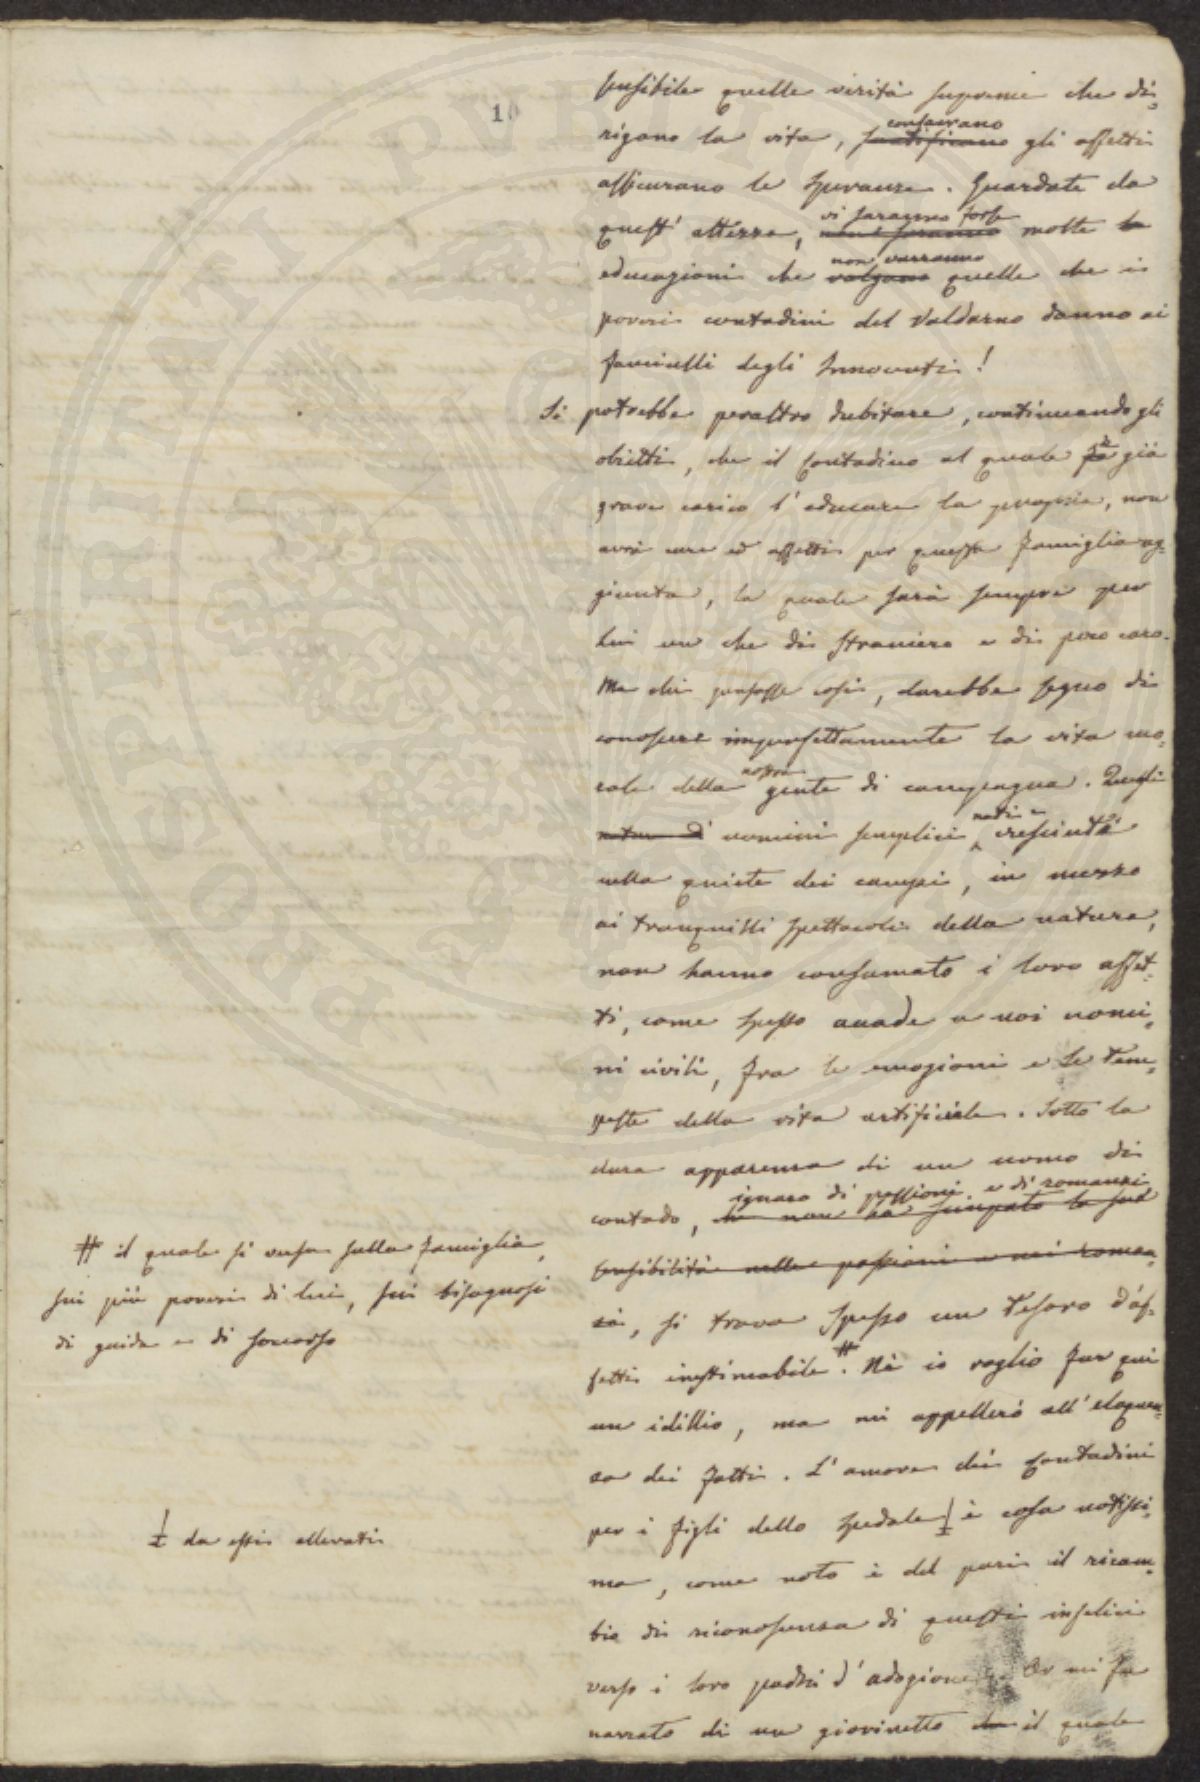 10
sensibile quelle verità supreme che di-
rigano la vita, santificano consacrano gli affetti
assicurano le speranze. Guardate da
quest' altezza, non vi saranno vi saranno forse molte le
educazioni che valgano non varranno quelle che i
poveri contadini del Valdarno danno ai
fanciulli degli Innocenti!
Si potrebbe peraltro dubitare, continuando gli
obietti, che il Contadino al quale fa è già
grave carico l' educare la propria, non
avrà cure ed affetti per questa famiglia ag-
giunta, la quale sarà sempre per
lui un che di straniero e di poco caro.
Ma chi pensasse così, darebbe segno di
conoscere imperfettamente la vita mo-
rale della nostra gente di campagna. Questi
uomini semplici nati e cresciuti
nella quiete dei campi, in mezzo
ai tranquilli spettacoli della natura,
non hanno consumato i loro affet-
ti, come spesso accade a noi uomi-
ni civili, fra le emozioni e le tem-
peste della vita artificiale. Sotto la
dura apparenza di un uomo di
contado, ignaro di passioni e di romanzi che non ha sciupato la sua
sensibilità nelle passioni e nei roman-
zi, si trova spesso un tesoro d'af-
fetti inestimabile #. Nè io voglio far qui
un idillio, ma mi appellerò all' eloquen-
za dei fatti. L' amore dei Contadini
per i figli dello Spedale è cosa notissi-
ma, come noto è del pari il ricam-
bio di riconoscenza di questi infelici
verso i loro padri d' adozione. Or mi fu
narrato di un giovinetto che il quale
# il quale si versa sulla famiglia,
sui più poveri di lui, sui bisognosi
di guida e di soccorso
da essi allevati